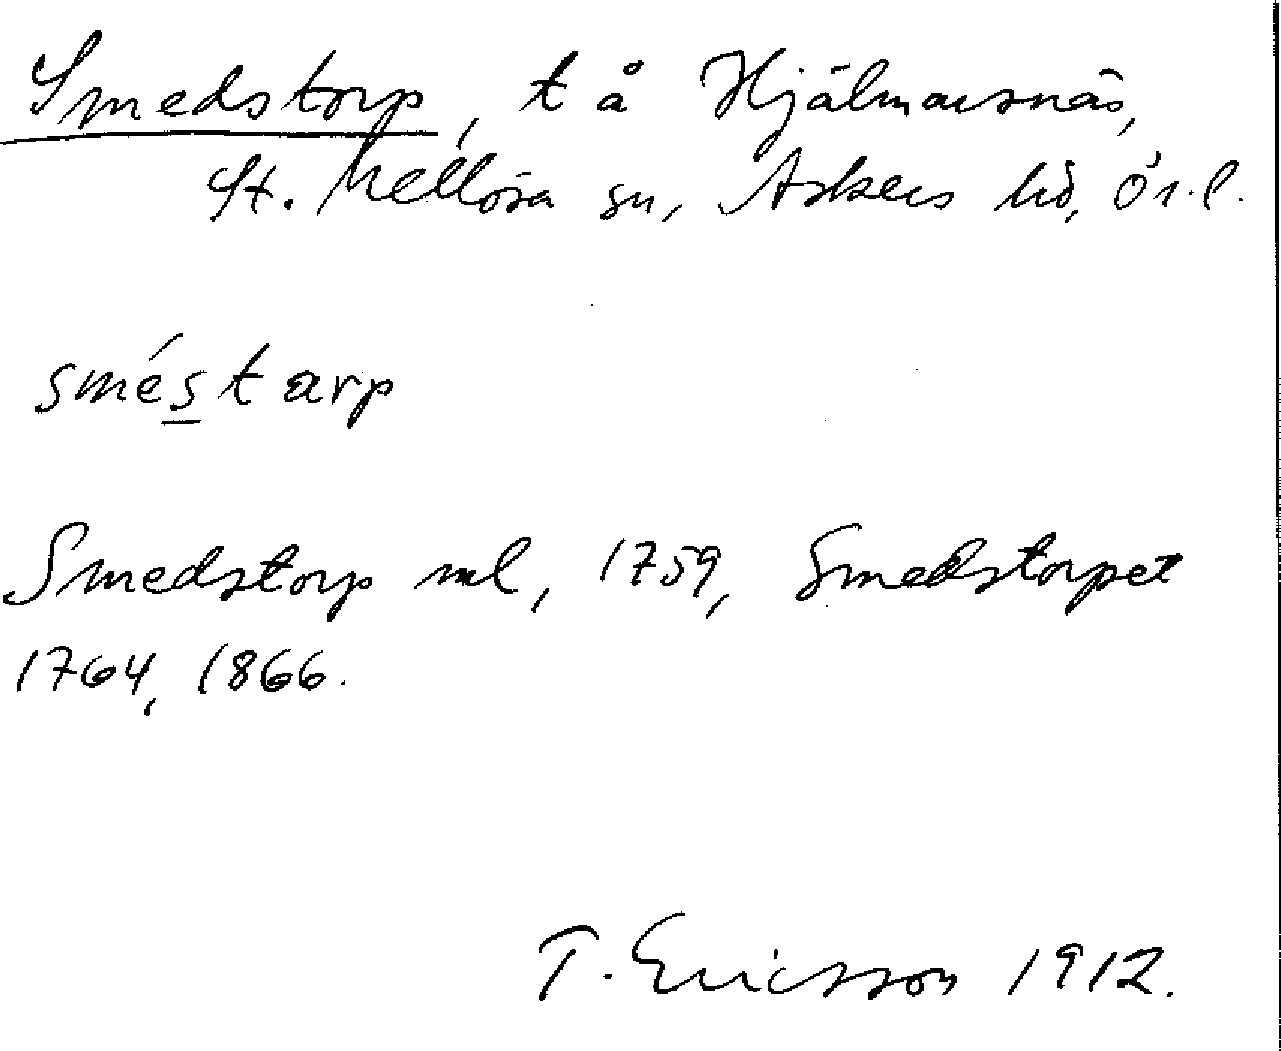 Smedstorp, t å Hjälmarsnäs,
St. Mellösa sn, Askers hd, Ör.l.
sméstarp
Smedstorp ml, 1759, Smedstorpet
1764, 1866.
T. Ericsson 1912.